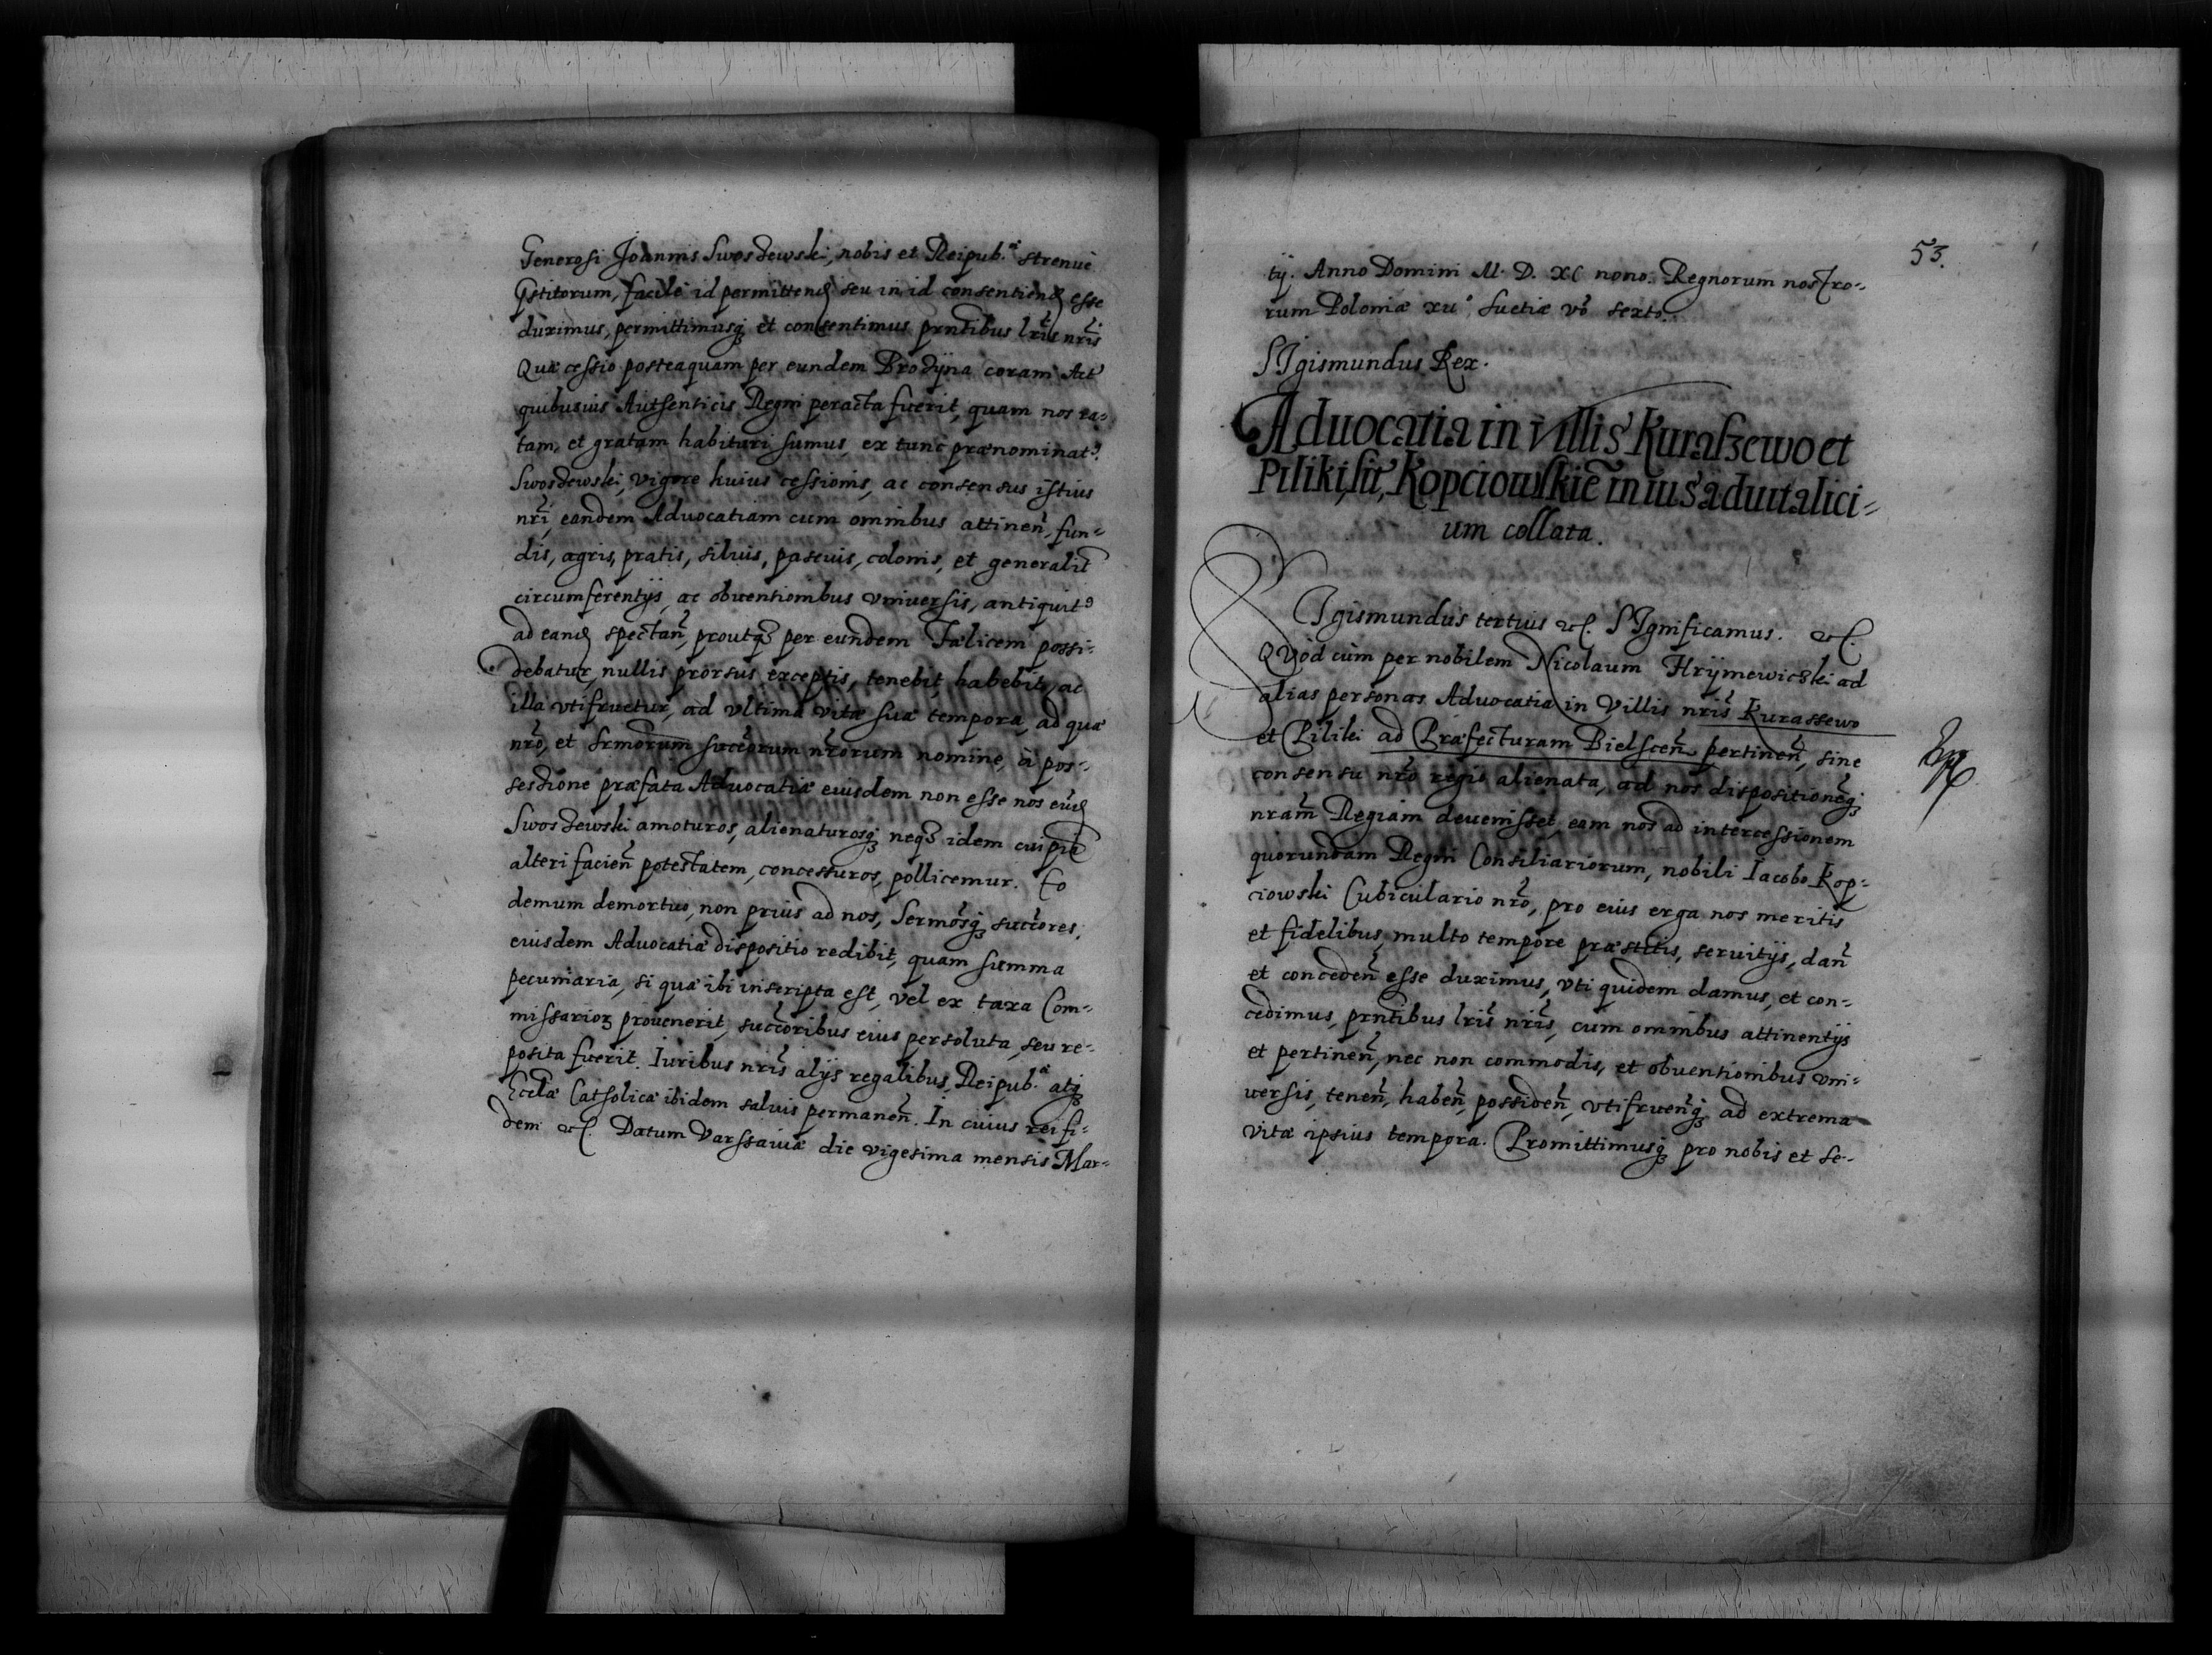 Generosi Joannis Swosdewski, nobis et Reipub.æ strenuè
Pstitorum, facilè id permittend seu in id consentiend esse
duximus, permittimusq et consentimus prntibus lris nris
Quæ cessio posteaquam per eundem Brodÿna coram Act
quibusuis Authenticis Regni peracta fuerit, quam nos ra-
tam, et gratam habituri sumus, ex tunc prænominat9.
Swosdewski, vigore huius cessionis, ac consensus istius
nri, eandem Aduocatiam cum omnibus attinen, fun-
dis, agris, pratis, siluis, pascuis, colonis, et generalit
circumferentÿs, ac obuentionibus vniuersis, antiquit9
ad eand spectan, proutq per eundem Fælicem possi-
debatur, nullis prorsus exceptis, tenebit, habebit, ac
illa vtifruetur, ad vltima vitæ suæ tempora, ad quæ
nro, et Srmorum succorum nrorum nomine, à pos-
sessione præfatæ Aduocatiæ eiusdem non esse nos eund
Swosdewski amoturos, alienaturosq neq idem cuipia
alteri facien potestatem, concessuros, pollicemur. Eo
demum demortuo, non prius ad nos, Sermosq succores,
eiusdem Aduocatiæ dispositio redibit, quam summa
pecuniaria, si quæ ibi inscripta est, vel ex taxa Com-
missarioꝝ prouenerit, succoribus eius persoluta, seu re-
posita fuerit. Iuribus nris alÿs regalibus, Reipub.æ atq
Eccliæ Catholicæ ibidem saluis permanen. In cuius rei fi-
dem etc. Datum Varssauiæ die vigesima mensis Mar-
53.
tÿ. Anno Domini M. D. XC nono. Regnorum nostro-
rum Poloniæ xii° Suetiæ vo sexto.
SIgismundus Rex.
Aduocatia in villis Kurassewo et
Piliki, sit, Kopciowskie in ius aduitalici-
um collata.
SIgismundus tertius etc. SIgnificamus. etc.
Quòd cùm per nobilem Nicolaum Hrÿmewicski ad
alias personas Aduocatia in Villis nris Kurassewo
et Piliki ad Præfecturam Bielscen pertinen, sine
consensu nro regio alienata, ad nos dispositioneq
nram Regiam deuenisset, eam nos ad intercessionem
quorundam Regni Consiliariorum, nobili Iacobo Kop-
ciowski Cubiculario nro, pro eius erga nos meritis
et fidelibus, multo tempore præstitis, seruitÿs, dan
et conceden esse duximus, vti quidem damus, et con-
cedimus, prntibus lris nris, cum omnibus attinentÿs
et pertinen, nec non commodis, et obuentionibus vni-
uersis, tenen, haben, possiden, vtifruenq ad extrema
vitæ ipsius tempora. Promittimusq pro nobis et Se-